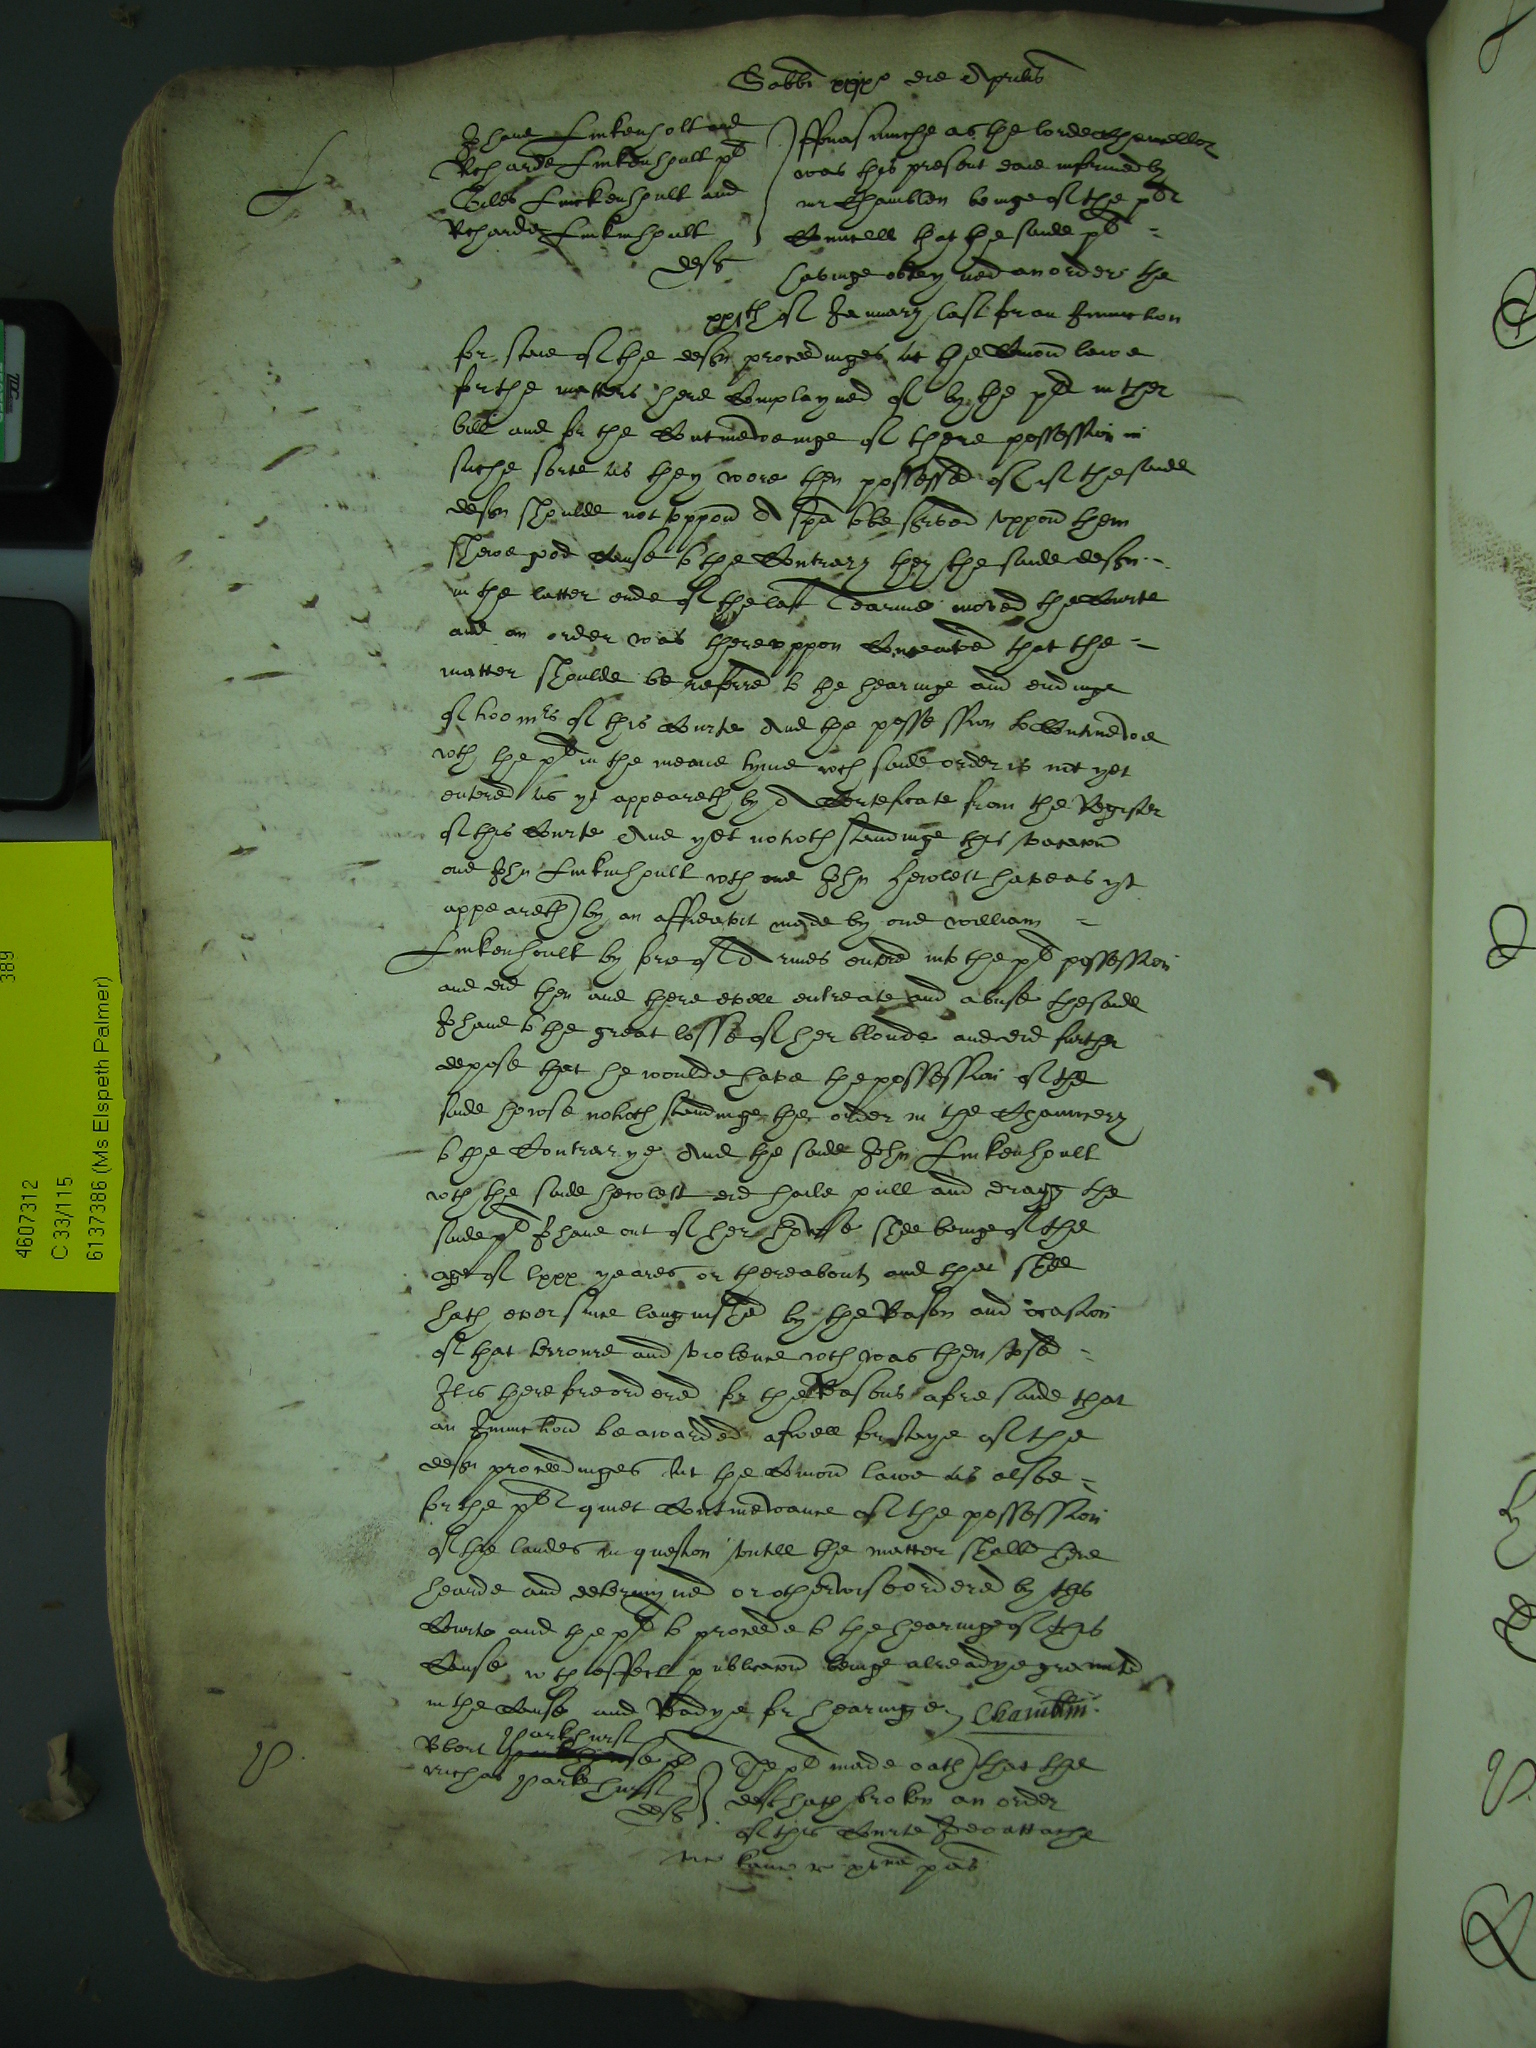 Sabbi xxix° die Aprilis
L
Jhane Linkenholt and
Richarde Linkenhoult pl
Giles Linckenhoult and
Richarde Linkinhoult
deftes
Fforasmuche as the lorde Chauncellor
was this present daie informed by
mr Chamblen beinge of the pltes
Councell that the saide pl =
havinge obteyned an order the
xxith of January last for an Iniunction
for staie of the deftes proceedinges at the Comon lawe
for the matters here Complayned of by the pl in ther
bill and for the Contineweinge of there possession in
suche sorte as they were then possessed of if the saide
deftes shoulde not vppon A spa to be served vppon them
shewe good Cause to the Contrary they the saide deftes -
in the latter ende of the last Tearme moved the Courte
and an order was therevppon Conceaved that the =
matter shoulde be referred to the hearinge and endinge
of twoo mrs of this Courte And the possession to Contineweo
wth the pl in the meane tyme wch saide order is not yet
entered as yt appeareth by A Certeficate from the Register
of this Courte And yet notwthstandinge this vacacon
one John Linkinhoult wth one John Hewlett have as yt
appeareth by an affidavit made by one William =
Linkenhoult by force of Armes entred into the pl possession
and did then and there evell entreate and abuse the saide
Jhane to the great losse of her bloude and did further
depose that he woulde have the possession of the
saide howse notwthstandinge the order in the Chauncery
to the Contrarye And the saide John Linkenhoult
wth the saide Hewlett did haile pull and dragg the
saide pl Jhane out of her howse shee beinge of the
age of lxxx yeares or thereabouts and that shee
hath ever since languished by the Reason and ocasion
of that terroure and violence wch was then vsed =
It is therefore ordered for the Reasons aforesaide that
an Iniunction be awarded aswell for staye of the
deftes proceedinges at the Comon lawe as alsoe =
for the pltes quiet Contineweance of the possession
of the landes in question vntill the matter shalbe here
hearde and determyned or otherwise ordered by this
Courte and the pl to proceede to the hearinge of this
Cause wth effect publicacon beinge alreadye graunted
in the Cause and Readye for hearinge Chamblin
P
Robert Parkhurst pl
Nichas Parkhurst
deft
The pl made oath that the
deft hath broken an order
of this Courte Ideo attache